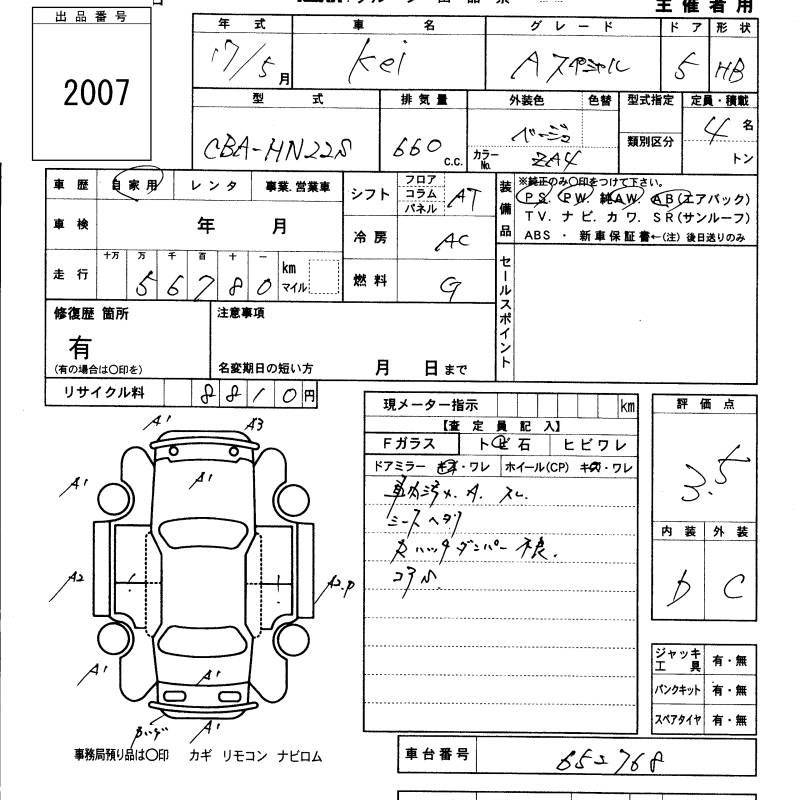 出品番号
2007
主催者用
年式 車名 グレード ドア 形状
17/5月 Kei Aスペシャル 5 HB
型式 排気量 外装色 色替 型式指定 定員・積載
類別区分
CBA-HN22S 660 c.c. ベージュ カラーNo. ZA4 4名
トン
車歴 自家用 レンタ 事業.営業車
車検 年 月
走行 十万 万 千 百 十 一
56780 km マイル
シフト フロア コラム パネル AT
冷房 AC
燃料 G
装備品
※純正のみ〇印をつけて下さい。
PS. PW. 純AW. AB(エアバック)
TV. ナビ. カワ. SR(サンルーフ)
ABS ・ 新車保証書←(注) 後日送りのみ
セールスポイント
修復歴 箇所
有
(有の場合は〇印を)
注意事項
名変期日の短い方 月 日まで
リサイクル料 8810円
現メーター指示 km
【査定員記入】
Fガラス トビ石 ヒビワレ
ドアミラー キズ・ワレ ホイール(CP) キズ・ワレ
車内汚れ. A. スレ.
シートヘタリ
Rハッチダンパー不良.
コゲ
評価点
3.5
内装 外装
D C
ジャッキ工具 有・無
パンクキット 有・無
スペアタイヤ 有・無
A1 A3
A1
A1 A1
A2 A2.P
A1 A1
A1
A1
事務局預り品は〇印 カギ リモコン ナビロム
車台番号 652768